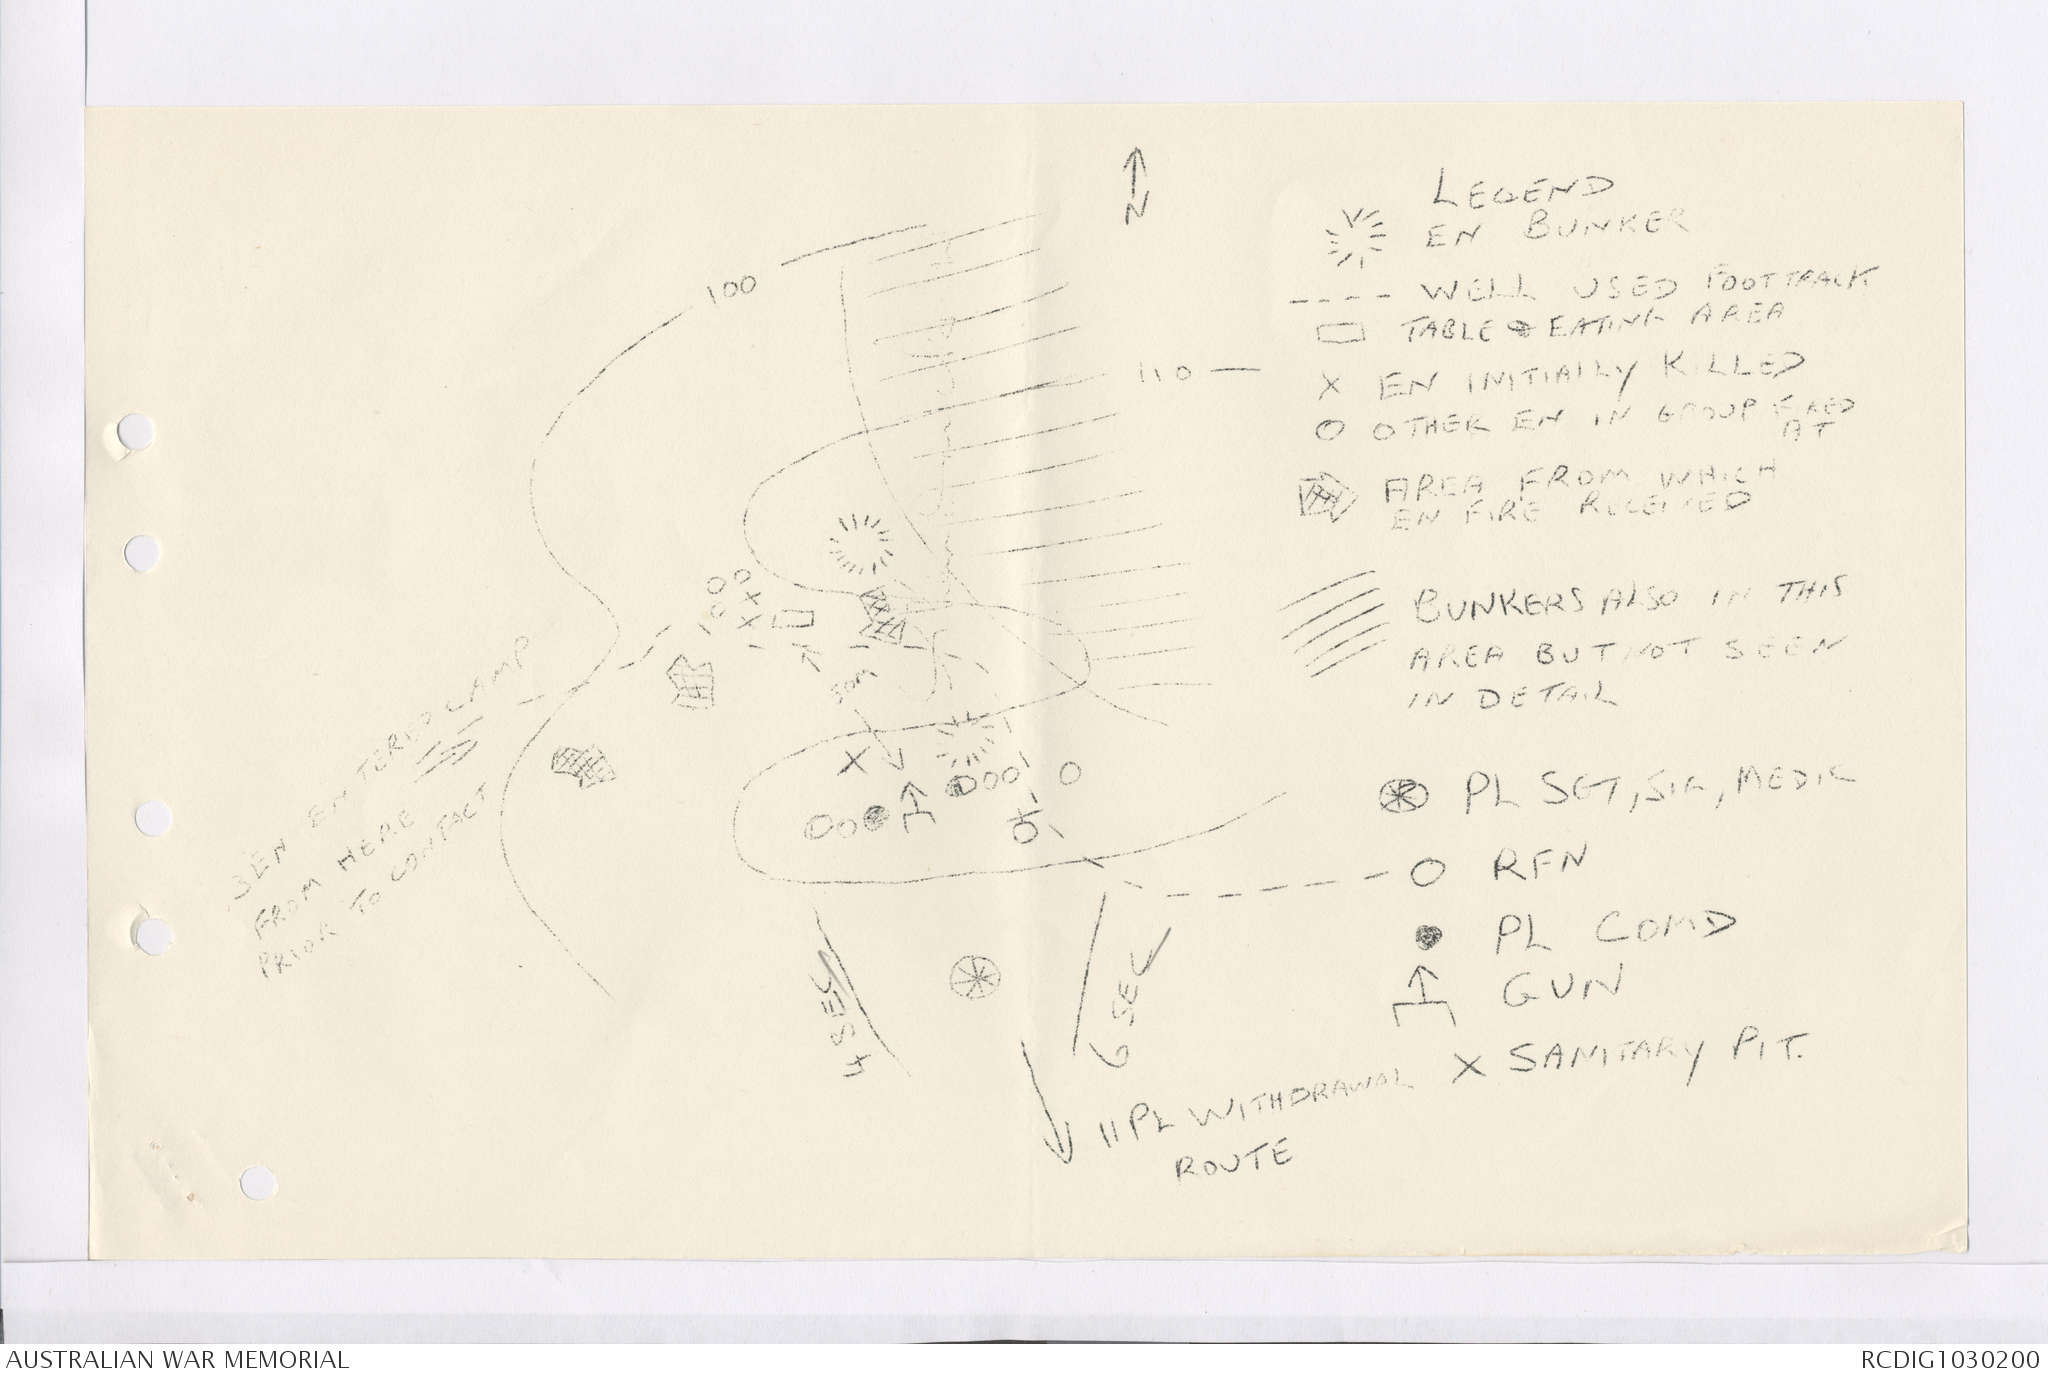 N
LEGEND
EN BUNKER
WELL USED FOOTTRACK
TABLE & EATING AREA
X EN INITIALLY KILLED
O OTHER EN IN GROUP FIRED
AT
AREA FROM WHICH
EN FIRE RECEIVED
BUNKERS ALSO IN THIS
AREA BUT NOT SEEN
IN DETAIL
PL SGT, SIG, MEDIC
RFN
PL COMD
GUN
X SANITARY PIT.
100
110
30M
3 EN ENTERED CAMP
FROM HERE
PRIOR TO CONTACT
4 SEC
6 SEC
11 PL WITHDRAWAL
ROUTE
AUSTRALIAN WAR MEMORIAL
RCDIG1030200